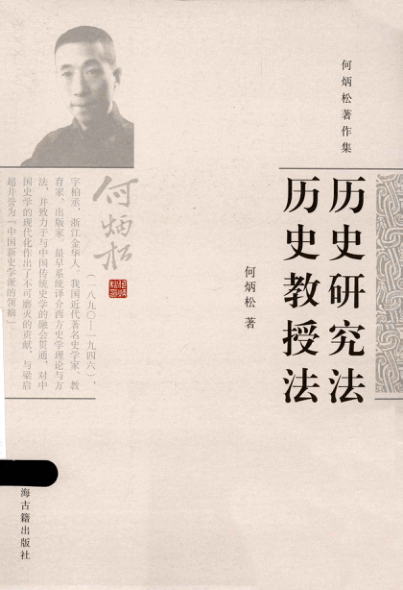 何炳松著作集
历史研究法
历史教授法
何炳松 著
何炳松
（一八九〇—一九四六），
字柏丞，浙江金华人，我国近代著名史学家、教
育家、出版家，最早系统译介西方史学理论与方
法，并致力于与中国传统史学的融会贯通，对中
国史学的现代化作出了不可磨灭的贡献，与梁启
超并誉为「中国新史学派的领袖」
海古籍出版社